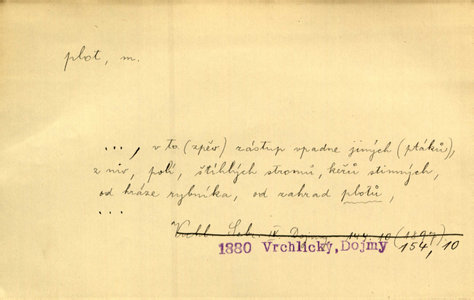 plot, m.
..., v to (zpěv) zástup vpadne jiných (ptáků),
z niv, polí, štíhlých stromů, keřů stinných,
od hráze rybníka, od zahrad plotů,
...
Vrchl. Sebr. IX Dojmy 144, 10 (1897)
1880 Vrchlický, Dojmy 154, 10